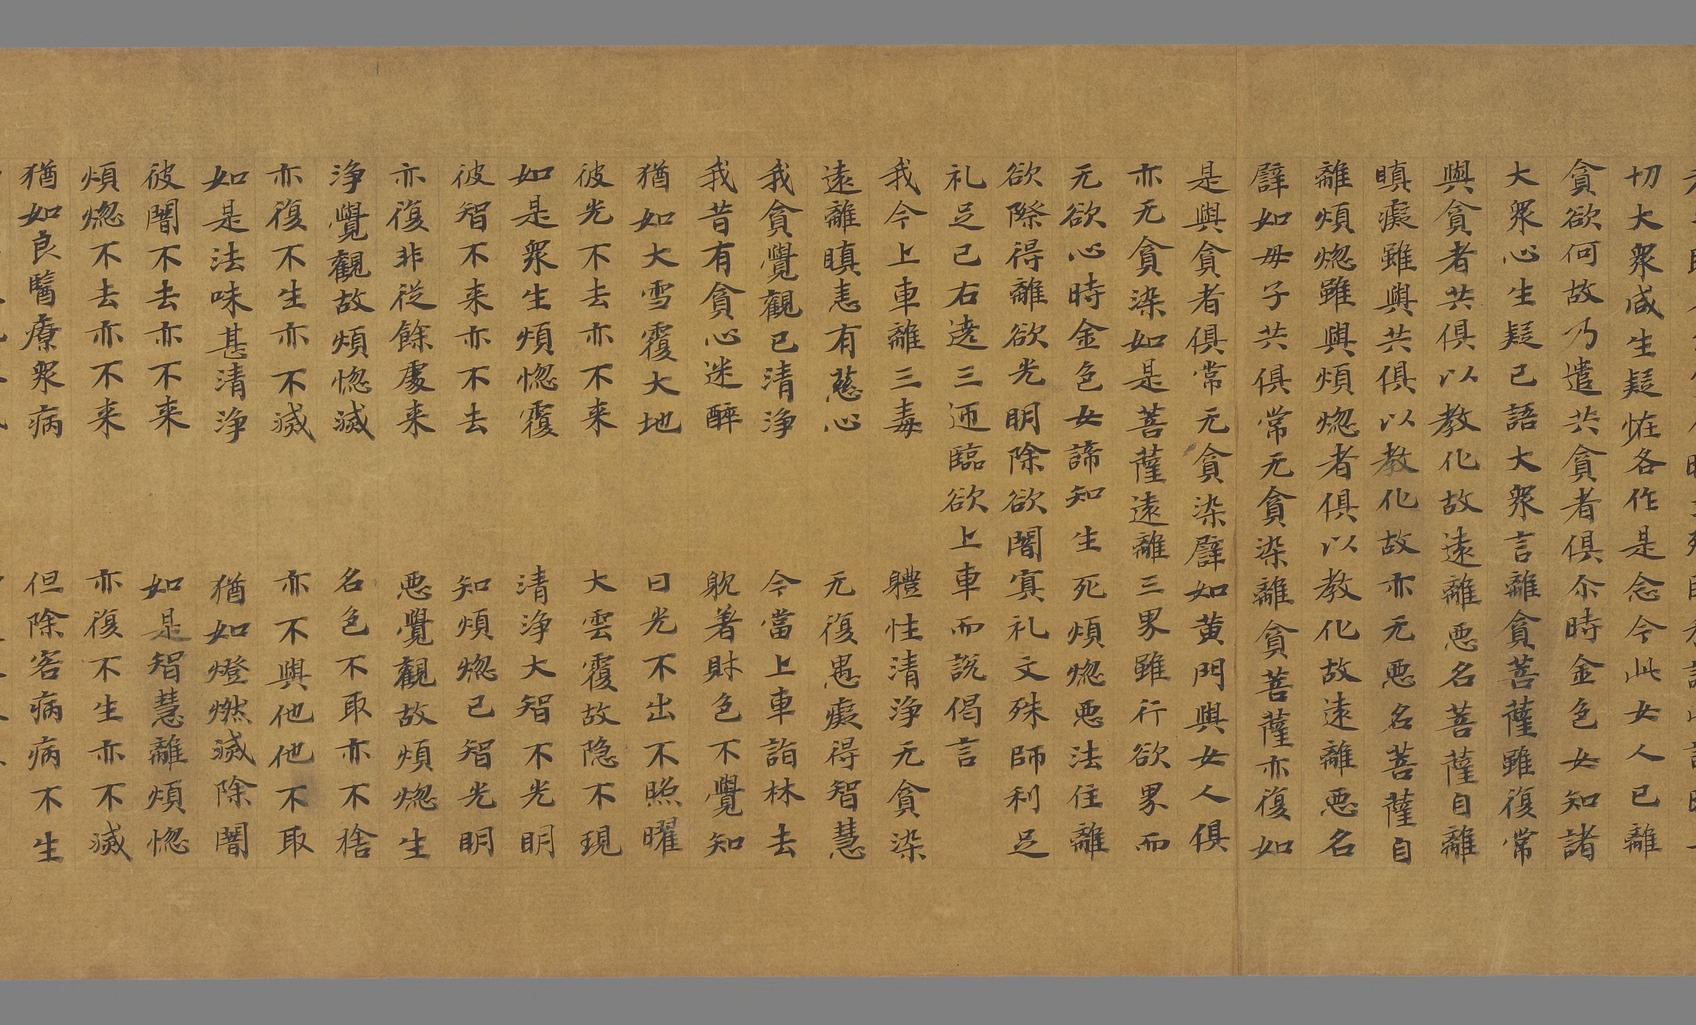 切大衆咸生疑恠各作是念今此女人已離
貪欲何故乃遣共貪者俱尒時金色女知諸
大衆心生疑已語大衆言離貪菩薩雖復常
與貪者共俱以教化故遠離惡名菩薩自離
瞋癡雖與共俱以教化故亦无惡名菩薩自
離煩惚雖與煩惚者俱以教化故遠離惡名
譬如母子共俱常无貪染離貪菩薩亦復如
是與貪者俱常无貪染譬如黄門與女人俱
亦无貪染如是菩薩遠離三界雖行欲界而
无欲心時金色女諦知生死煩惚惡法住離
欲際得離欲光明除欲闇冥礼文殊師利足
礼足已右遶三迊臨欲上車而說偈言
我今上車離三毒　體性清淨无貪染
遠離瞋恚有慈心　无復愚癡得智慧
我貪覺觀已清淨　今當上車詣林去
我昔有貪心迷醉　躭著財色不覺知
猶如大雪覆大地　日光不出不照曜
彼光不去亦不来　大雲覆故隐不現
如是衆生煩惚覆　清淨大智不光明
彼智不来亦不去　知煩惚已智光明
亦復非從餘處来　惡覺觀故煩惚生
淨覺觀故煩惚滅　名色不取亦不捨
亦復不生亦不滅　亦不與他他不取
如是法味甚清淨　猶如燈燃滅除闇
彼闇不去亦不来　如是智慧離煩惚
煩惚不去亦不来　亦復不生亦不滅
猶如良醫療衆病　但除客病病不生